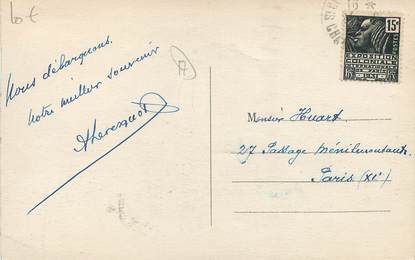 10 €
Nous débarquons.
notre meilleur souvenir
A
15c
EXPOSITION
COLONIALE
INTERNATIONALE
PARIS 1931
Monsieur Huart
27 Passage Ménilmontant
Paris (XIe)